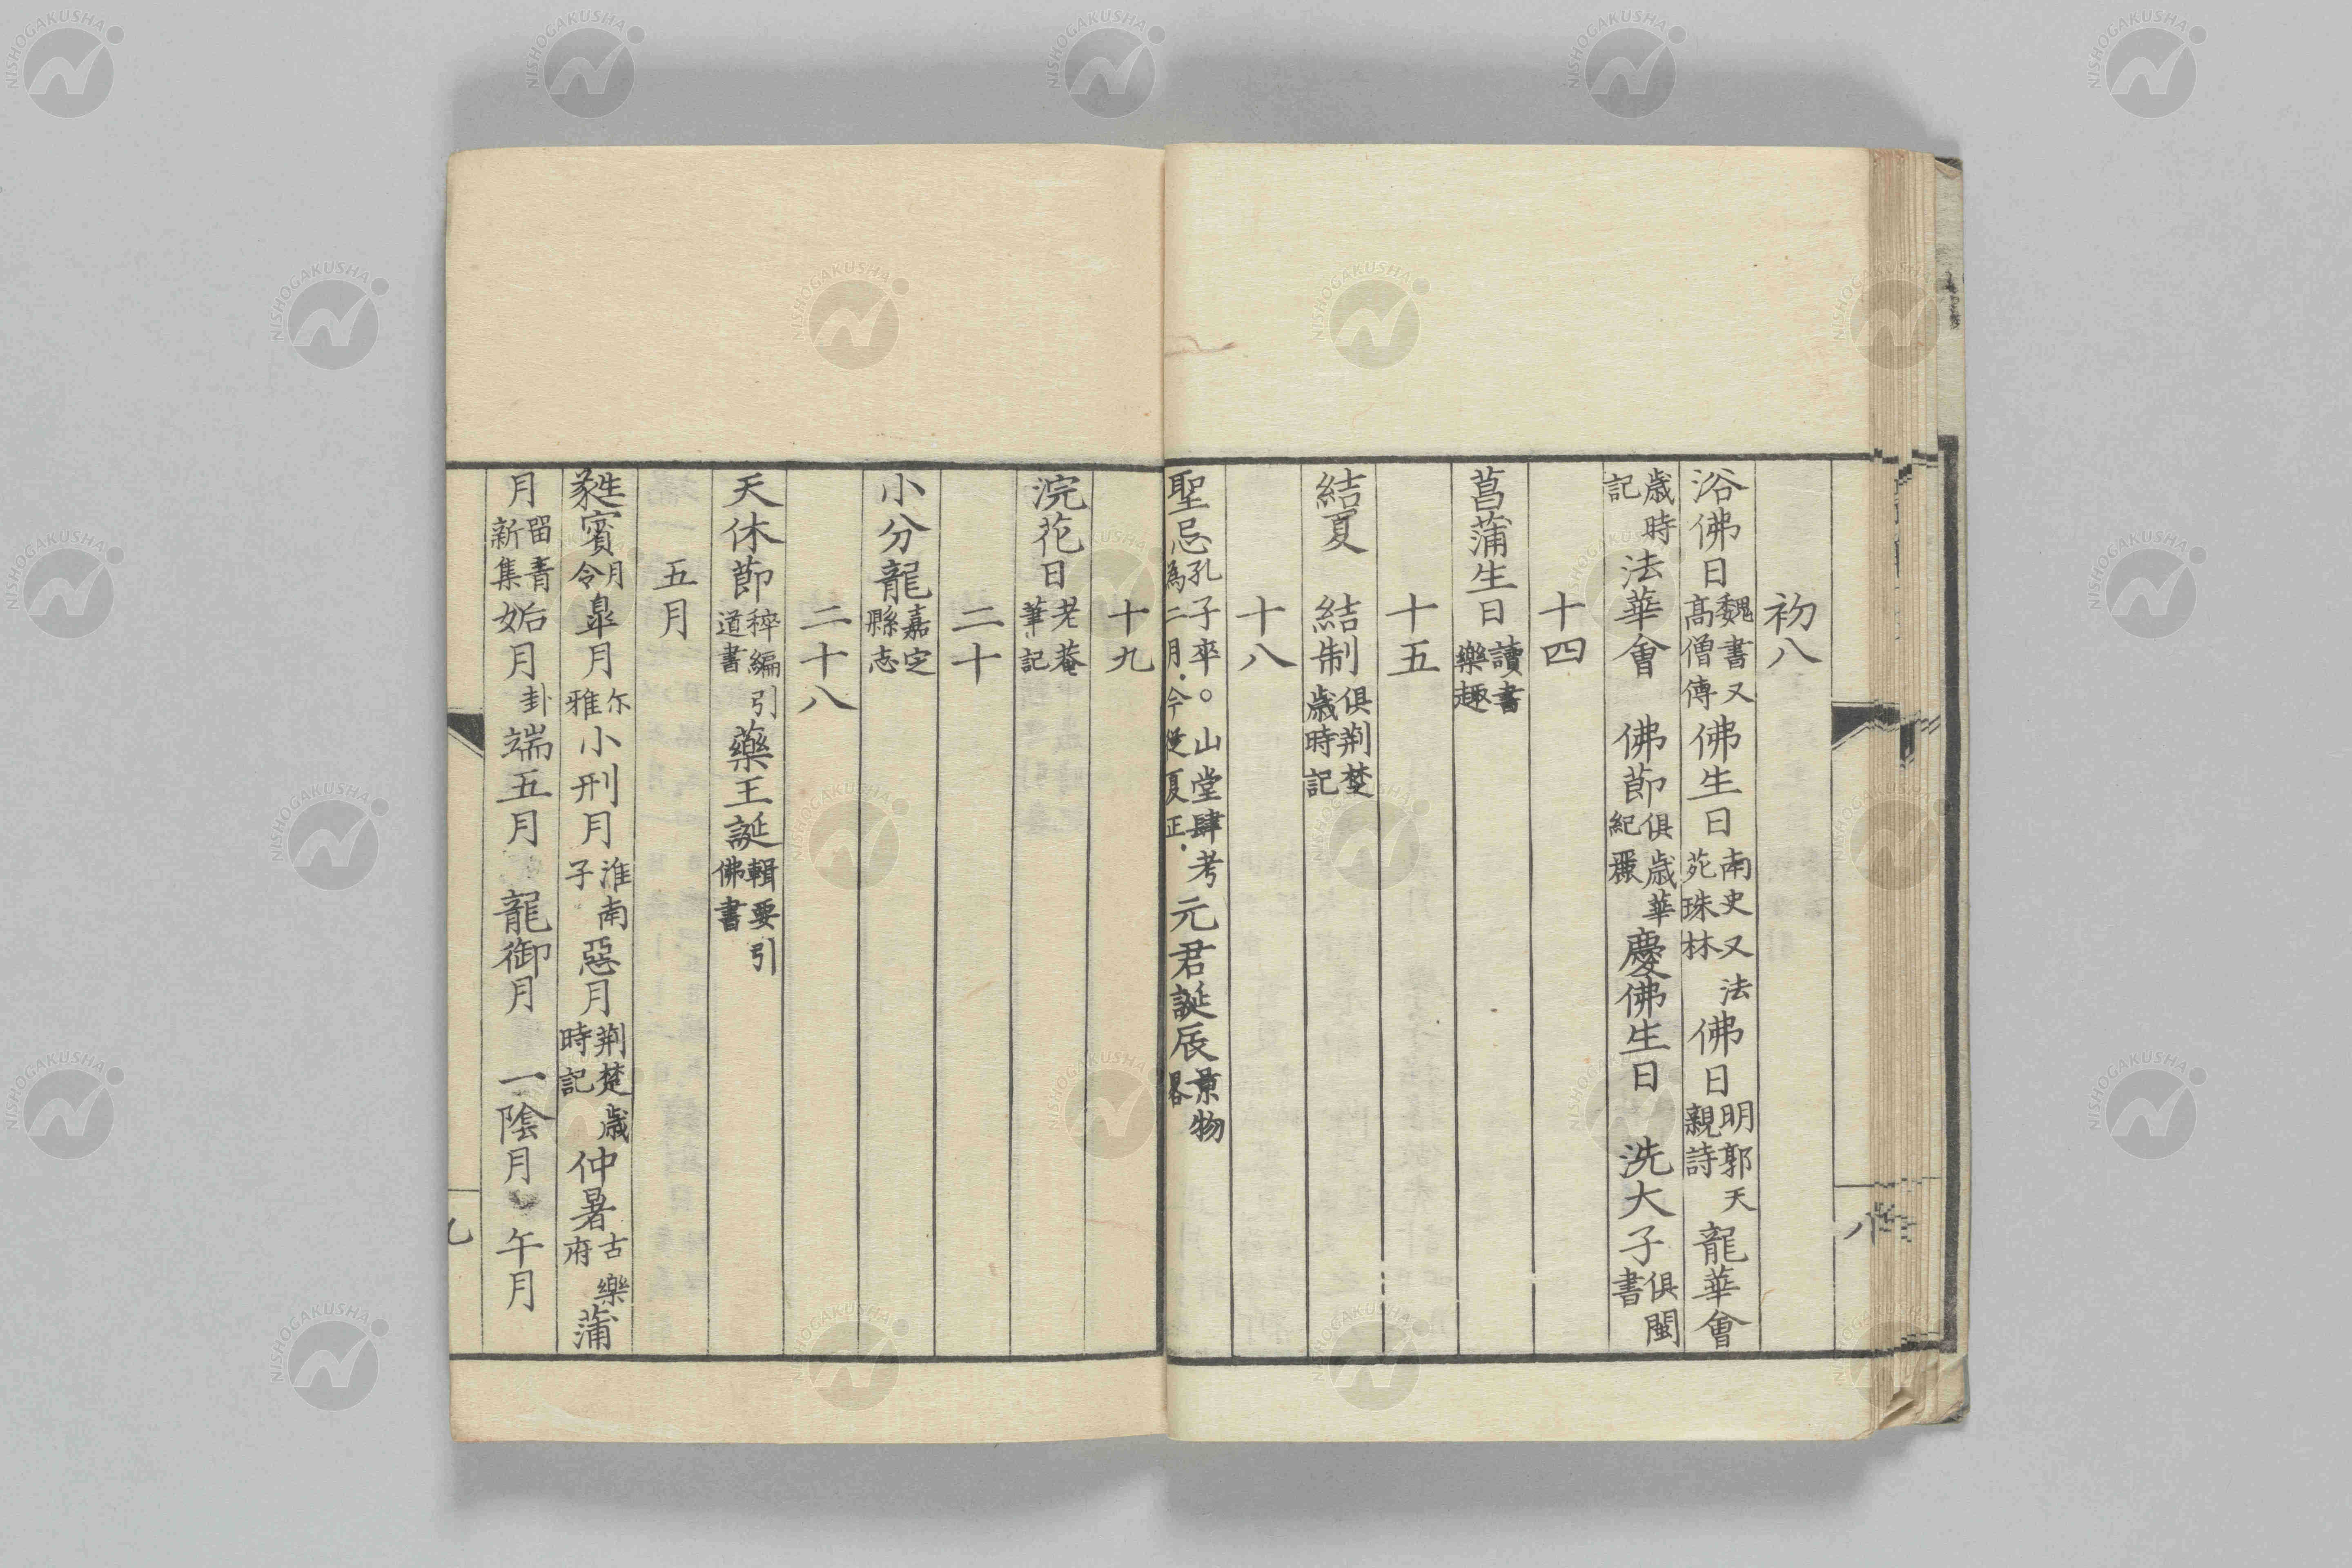 初八
浴佛日魏書又高僧傳佛生日南史又法苑珠林佛日明郭天親詩龍華會
歲時記法華會 佛節俱歲華紀麗慶佛生日 洗大子俱閩書
十四
菖蒲生日讀書樂趣
十五
結夏 結制俱荊楚歲時記
十八
聖忌孔子卒。山堂肆考為二月今從夏正元君誕辰景物畧
八
十九
浣花日老菴筆記
二十
小分龍嘉定縣志
二十八
天休節稗編引道書藥王誕輯要引佛書
五月
蕤賓月令皐月尔雅小刑月淮南子惡月荊楚歲時記仲暑古樂府蒲
月留青新集姤月卦端五月 龍御月 一陰月 午月
九
NISHOGAKUSHA